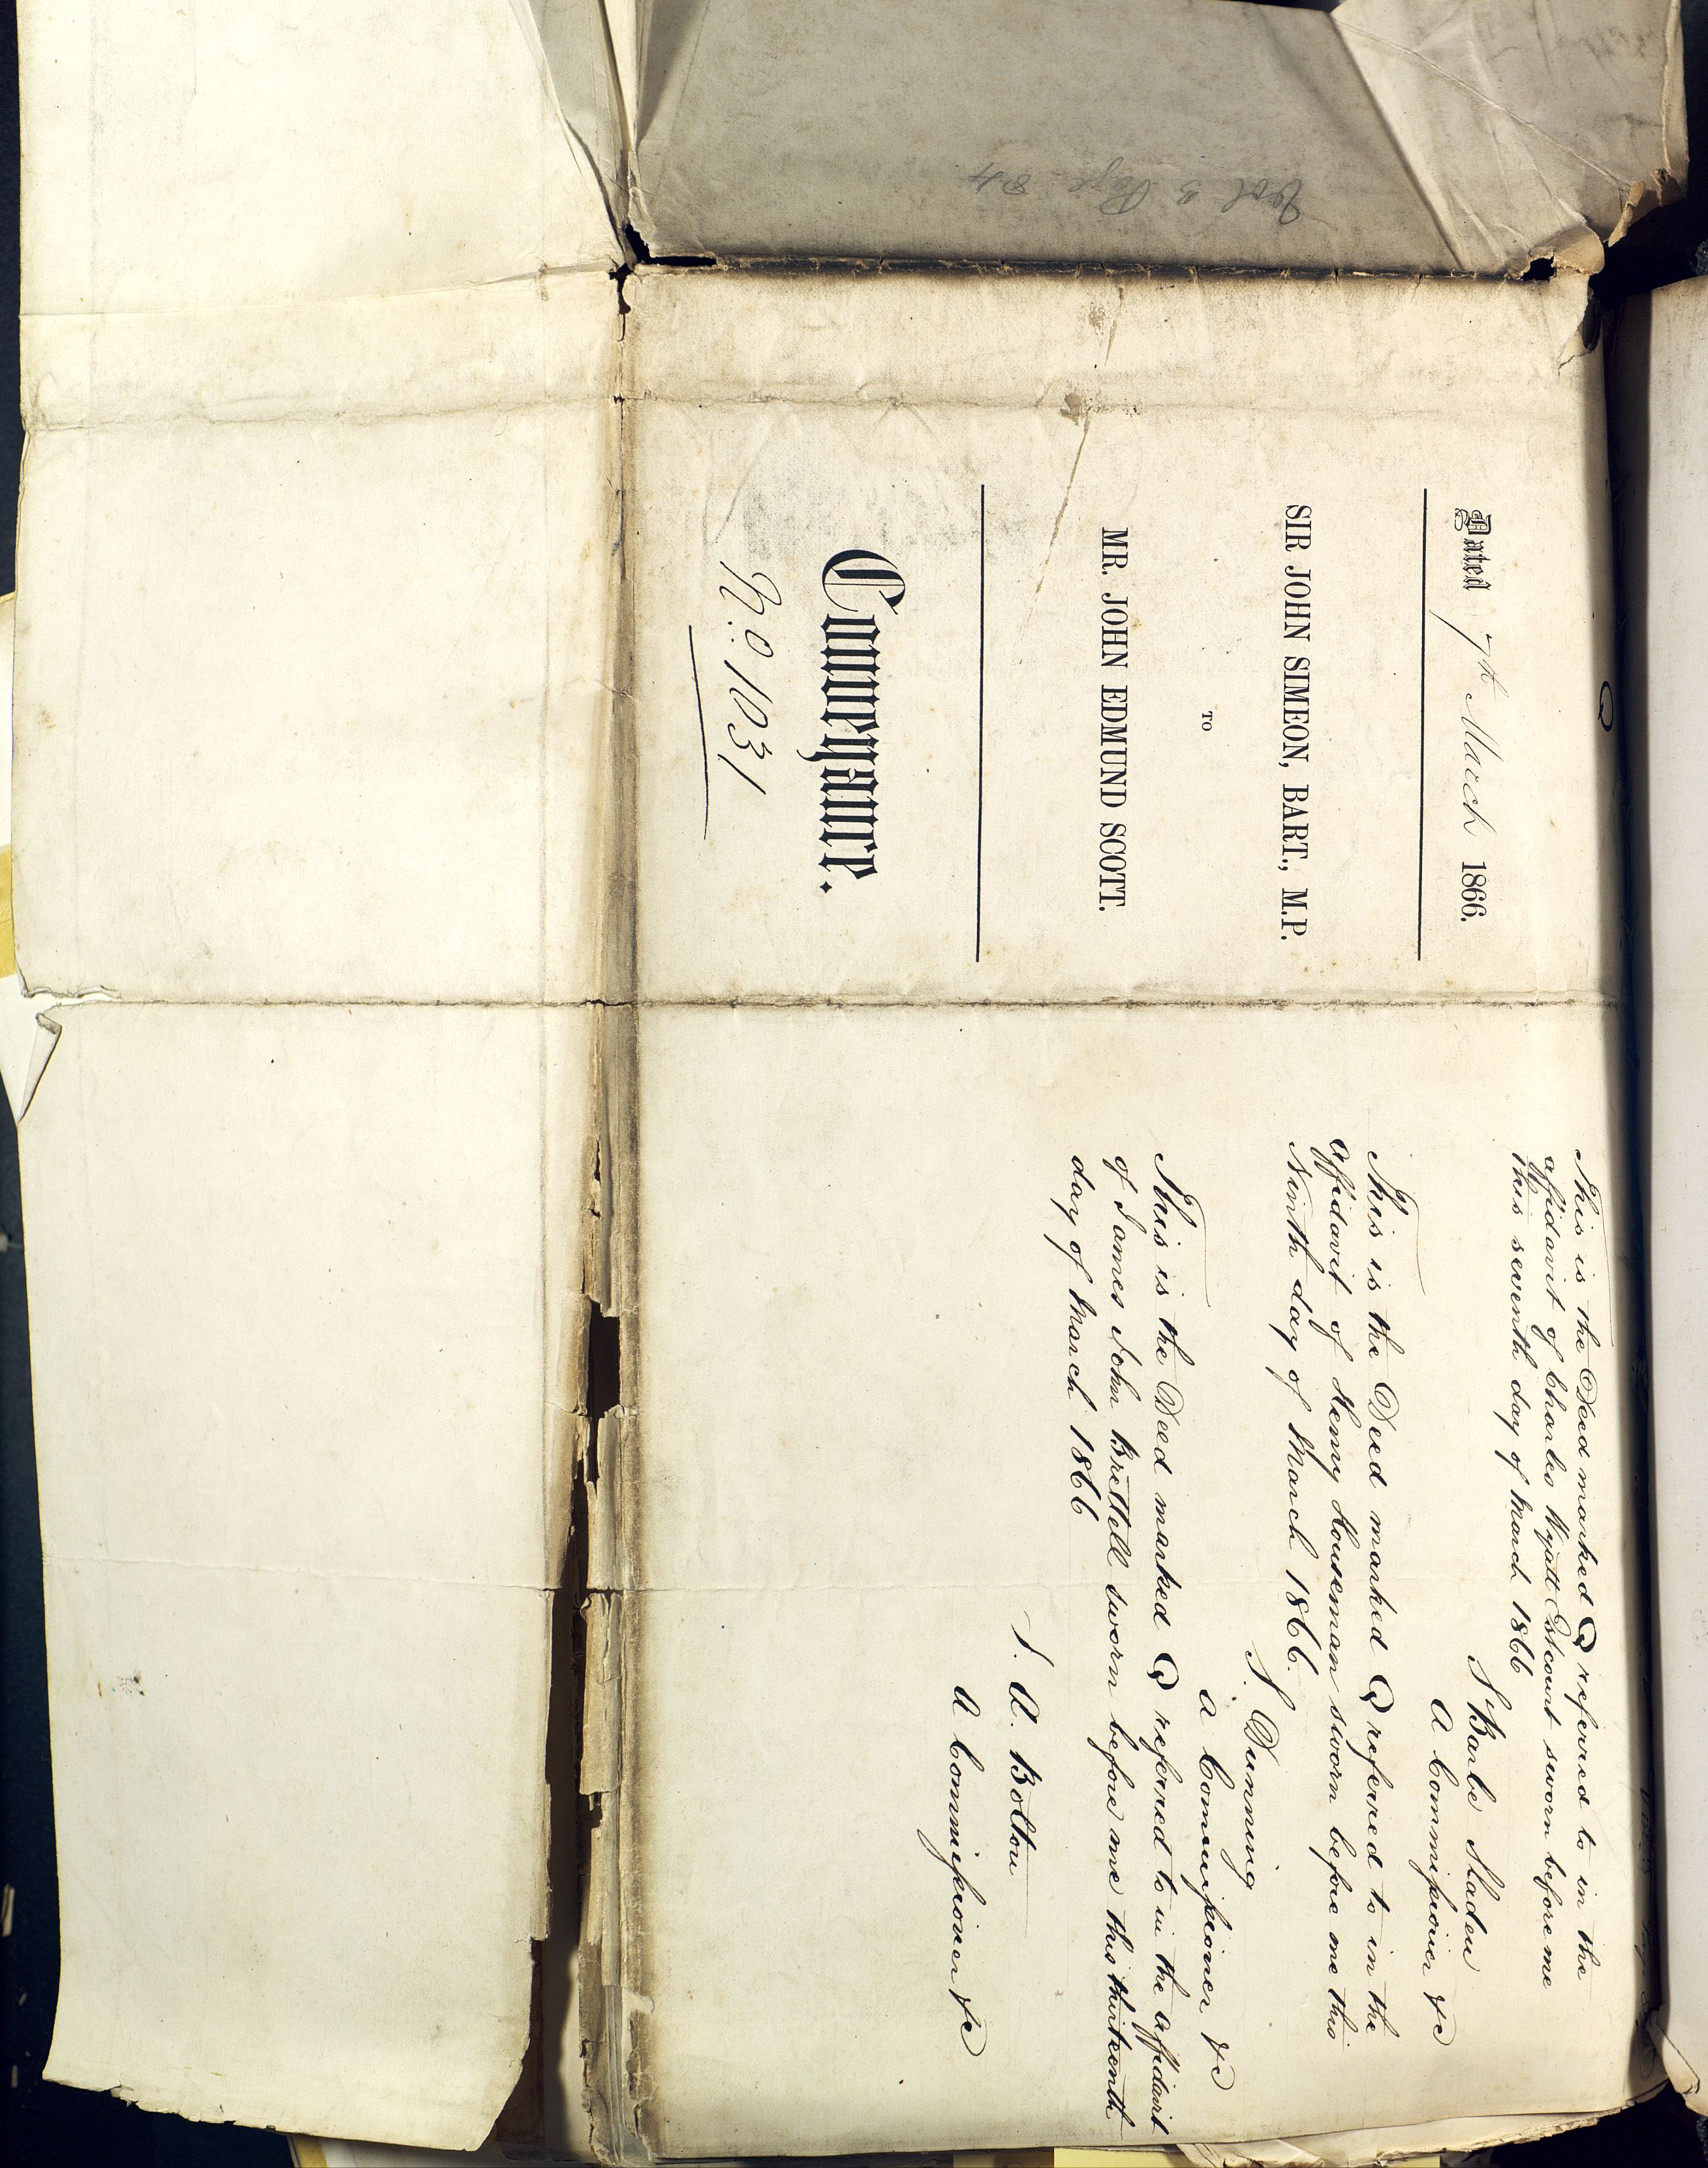 Vol 3 Page 84
Q
Dated 7th March 1866.
SIR JOHN SIMEON, BART., M.P.
TO
MR. JOHN EDMUND SCOTT.
Conveyance.
No 1031
This is the Deed marked Q referred to in the
affidavit of Charles Wyatt Estcourt sworn before me
this seventh day of March 1866
J Barbe Sladen
A Commissioner &c
This is the Deed marked Q referred to in the
affidavit of Henry Houseman sworn before me this
Ninth day of March 1866.
S. Dunning
a Commissioner &c
This is the Deed marked Q referred to in the affidavit
of James John Brettell sworn before me this thirteenth
day of March 1866
J. A. Bolton
A Commissioner &c